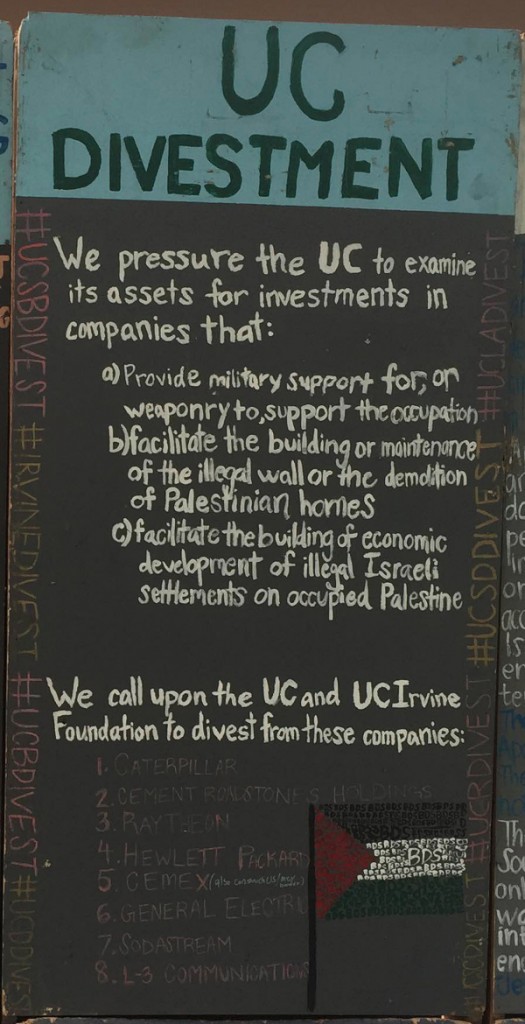 UC
DIVESTMENT
We pressure the UC to examine
its assets for investments in
companies that:
a) Provide military support for, or
weaponry to, support the occupation
b) facilitate the building or maintenance
of the illegal wall or the demolition
of Palestinian homes
c) facilitate the building of economic
development of illegal Israeli
settlements on occupied Palestine
We call upon the UC and UC Irvine
Foundation to divest from these companies:
1. CATERPILLAR
2. CEMENT ROADSTONES HOLDINGS
3. RAYTHEON
4. HEWLETT PACKARD
5. CEMEX
6. GENERAL ELECTRI
7. SODASTREAM
8. L-3 COMMUNICATIONS
BDS
#UCSBDIVEST
#IRVINEDIVEST
#UCBDIVEST
#UCDDIVEST
#UCLADIVEST
#UCSDDIVEST
#UCRDIVEST